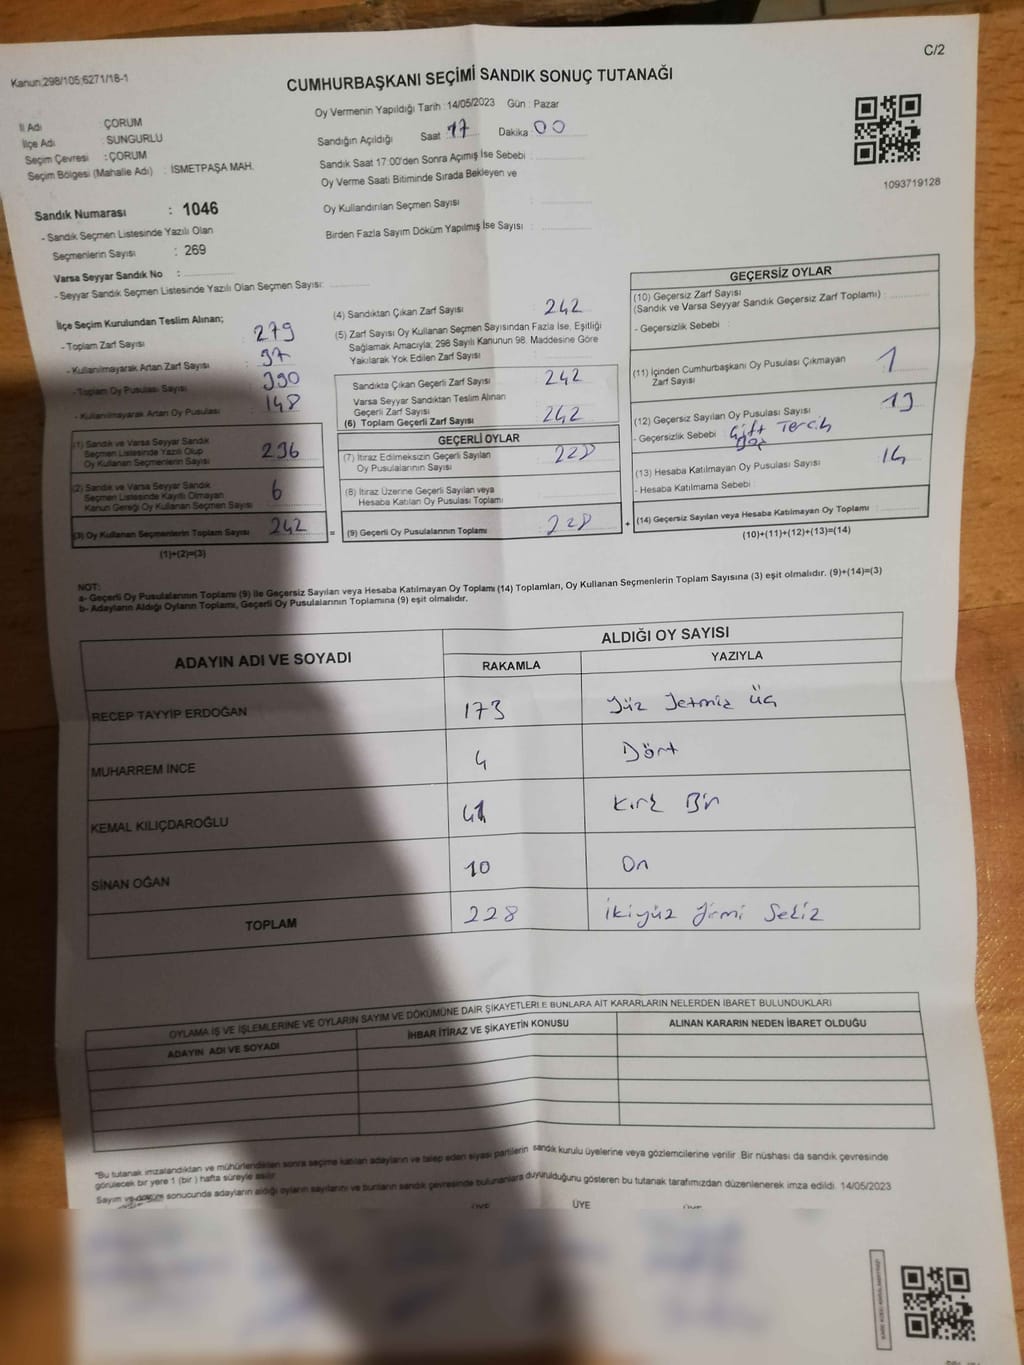 C/2
Kanun:298/105;6271/18-1
CUMHURBAŞKANI SEÇİMİ SANDIK SONUÇ TUTANAĞI
İl Adı : ÇORUM
İlçe Adı : SUNGURLU
Seçim Çevresi : ÇORUM
Seçim Bölgesi (Mahalle Adı) : İSMETPAŞA MAH.
Oy Vermenin Yapıldığı Tarih : 14/05/2023 Gün : Pazar
Sandığın Açıldığı Saat 17 Dakika 00
Sandık Saat 17:00'den Sonra Açımış İse Sebebi :
Oy Verme Saati Bitiminde Sırada Bekleyen ve
Oy Kullandırılan Seçmen Sayısı :
Birden Fazla Sayım Döküm Yapılmış İse Sayısı :
1093719128
Sandık Numarası : 1046
- Sandık Seçmen Listesinde Yazılı Olan
Seçmenlerin Sayısı : 269
Varsa Seyyar Sandık No :
- Seyyar Sandık Seçmen Listesinde Yazılı Olan Seçmen Sayısı:
İlçe Seçim Kurulundan Teslim Alınan;
- Toplam Zarf Sayısı : 279
- Kullanılmayarak Artan Zarf Sayısı : 37
- Toplam Oy Pusulası Sayısı : 390
- Kullanılmayarak Artan Oy Pusulası : 148
(1) Sandık ve Varsa Seyyar Sandık
Seçmen Listesinde Yazılı Olup
Oy Kullanan Seçmenlerin Sayısı : 236
(2) Sandık ve Varsa Seyyar Sandık
Seçmen Listesinde Kayıtlı Olmayan
Kanun Gereği Oy Kullanan Seçmen Sayısı 6
(3) Oy Kullanan Seçmenlerin Toplam Sayısı : 242
(1)+(2)=(3)
(4) Sandıktan Çıkan Zarf Sayısı : 242
(5) Zarf Sayısı Oy Kullanan Seçmen Sayısından Fazla İse, Eşitliği
Sağlamak Amacıyla; 298 Sayılı Kanunun 98. Maddesine Göre
Yakılarak Yok Edilen Zarf Sayısı :
Sandıkta Çıkan Geçerli Zarf Sayısı : 242
Varsa Seyyar Sandıktan Teslim Alınan
Geçerli Zarf Sayısı :
(6) Toplam Geçerli Zarf Sayısı : 242
GEÇERLİ OYLAR
(7) İtiraz Edilmeksizin Geçerli Sayılan
Oy Pusulalarının Sayısı : 228
(8) İtiraz Üzerine Geçerli Sayılan veya
Hesaba Katılan Oy Pusulası Toplamı :
= (9) Geçerli Oy Pusulalarının Toplamı : 228 +
GEÇERSİZ OYLAR
(10) Geçersiz Zarf Sayısı
(Sandık ve Varsa Seyyar Sandık Geçersiz Zarf Toplamı) :
- Geçersizlik Sebebi :
(11) İçinden Cumhurbaşkanı Oy Pusulası Çıkmayan
Zarf Sayısı : 1
(12) Geçersiz Sayılan Oy Pusulası Sayısı : 13
- Geçersizlik Sebebi : Çift Tercih
(13) Hesaba Katılmayan Oy Pusulası Sayısı : 14
- Hesaba Katılmama Sebebi :
(14) Geçersiz Sayılan veya Hesaba Katılmayan Oy Toplamı :
(10)+(11)+(12)+(13)=(14)
NOT:
a- Geçerli Oy Pusulalarının Toplamı (9) ile Geçersiz Sayılan veya Hesaba Katılmayan Oy Toplamı (14) Toplamları, Oy Kullanan Seçmenlerin Toplam Sayısına (3) eşit olmalıdır. (9)+(14)=(3)
b- Adayların Aldığı Oyların Toplamı, Geçerli Oy Pusulalarının Toplamına (9) eşit olmalıdır.
ADAYIN ADI VE SOYADI ALDIĞI OY SAYISI
RAKAMLA YAZIYLA
RECEP TAYYİP ERDOĞAN 173 Yüz Yetmiş üç
MUHARREM İNCE 4 Dört
KEMAL KILIÇDAROĞLU 41 Kırk Bir
SİNAN OĞAN 10 On
TOPLAM 228 ikiyüz Yirmi Sekiz
OYLAMA İŞ VE İŞLEMLERİNE VE OYLARIN SAYIM VE DÖKÜMÜNE DAİR ŞİKAYETLERLE BUNLARA AİT KARARLARIN NELERDEN İBARET BULUNDUKLARI
ADAYIN ADI VE SOYADI İHBAR İTİRAZ VE ŞİKAYETİN KONUSU ALINAN KARARIN NEDEN İBARET OLDUĞU
*Bu tutanak imzalandıktan ve mühürlendikten sonra seçime katılan adayların ve talep eden siyasi partilerin sandık kurulu üyelerine veya gözlemcilerine verilir. Bir nüshası da sandık çevresinde
görülecek bir yere 1 (bir) hafta süreyle asılır.
Sayım ve döküm sonucunda adayların aldığı oyların sayılarını ve bunların sandık çevresinde bulunanlara duyurulduğunu gösteren bu tutanak tarafımızdan düzenlenerek imza edildi. 14/05/2023
ÜYE